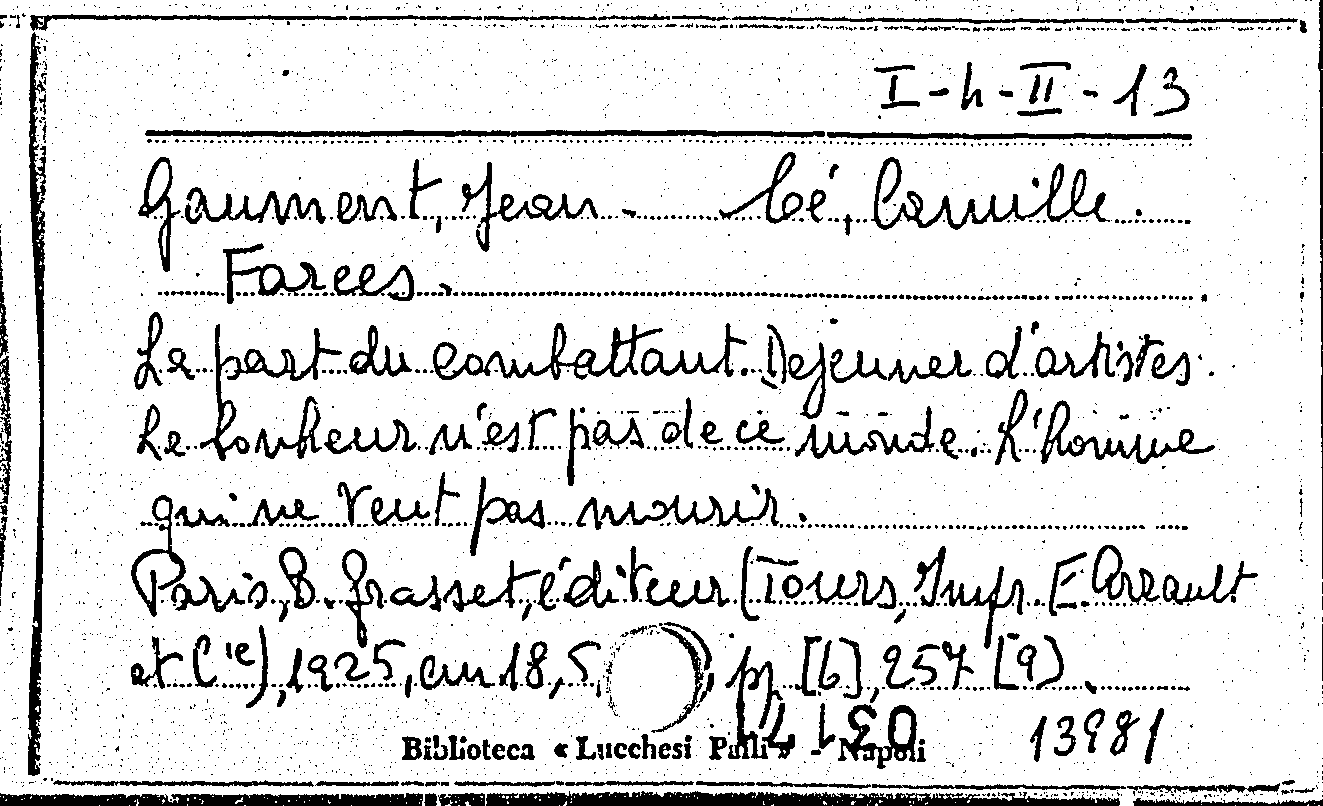 I-h-II-13
Gaument, Jean - Cé, Camille.
Farces.
La part du combattant. Dejeuner d'artistes.
Le bonheur n'est pas de ce monde. L'homme
qui ne veut pas mourir.
Paris, B. Grasset, éditeur (Tours, Impr. E. Arrault
et Cie), 1925, cm 18,5, pp [6], 257 [9).
Biblioteca « Lucchesi Palli » - Napoli
13981